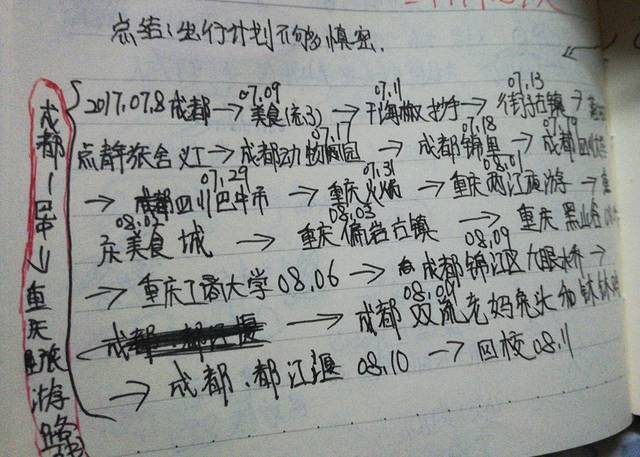 总结：出行计划不够慎密.
成都—巴中→重庆旅游路线
07.09 07.11 07.13
2017.07.8成都→美食(龙)→干海椒抄手→街子古镇→
07.17 07.18 07.19
义工→成都动物园→成都锦里→成都四川
07.29 07.31 08.01
→四川巴中市→重庆火锅→重庆两江旅游→重
08.03
庆美食城→重庆偏岩古镇→重庆黑山谷
08.09
→重庆工商大学08.06→成都锦江区九眼桥→
→成都双流老妈兔头和钵钵
→成都.都江堰 08.10→回校08.11